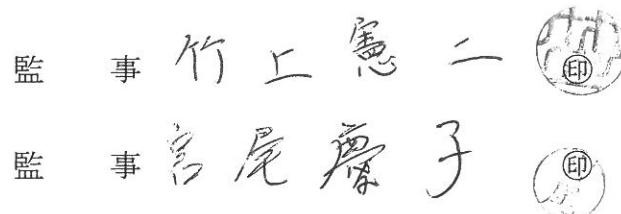 監事 竹上憲二 ㊞
監事 宮尾慶子 ㊞